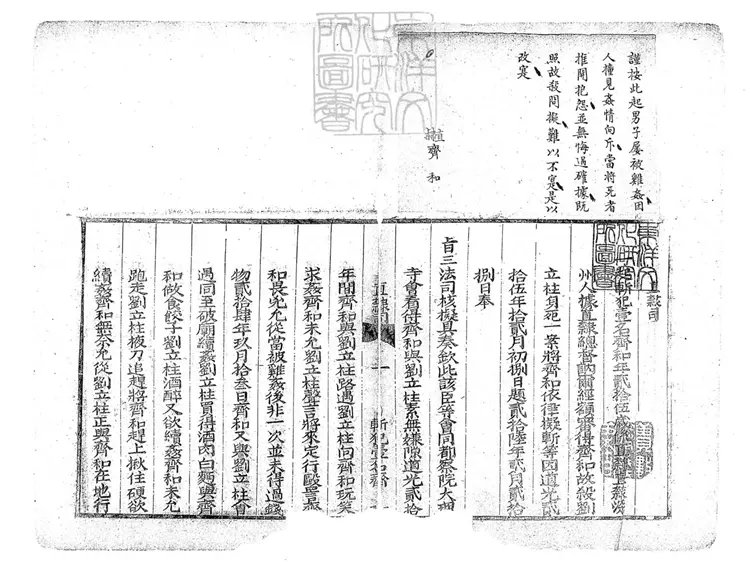 謹按此起男子屡被雞姦因
人撞見姦情向斥當將死者
推閗抱怨並無悔過確據既
照故殺閗擬難以不寔是以
改寔
直
齊和
東洋文化研究所圖書
東洋文化研究所圖書
直隷司
斬犯壹名齊和年貳拾伍歲係直隷滄
州人據直隷總督訥爾經額審得齊和故殺劉
立柱身死一案將齊和依律擬斬等因道光貳
拾伍年拾貳月初捌日題貳拾陸年貳月貳拾
捌日奉
旨三法司核擬具奏欽此該臣等會同都察院大理
寺會看得齊和與劉立柱素無嫌隙道光貳拾
直隷司 一 斬犯壹名齊
年間齊和與劉立柱路遇劉立柱向齊和玩笑
求姦齊和未允劉立柱聲言將來定行毆詈齊
和畏兇允從當被雞姦後非一次並未得過錢
物貳拾肆年玖月拾叁日齊和又與劉立柱會
遇同至破廟續姦劉立柱買得酒肉白麵與齊
和做食餃子劉立柱酒醉又欲續姦齊和未允
跑走劉立柱掖刀追趕將齊和趕上揪住硬欲
續姦齊和無奈允從劉立柱正與齊和在地行